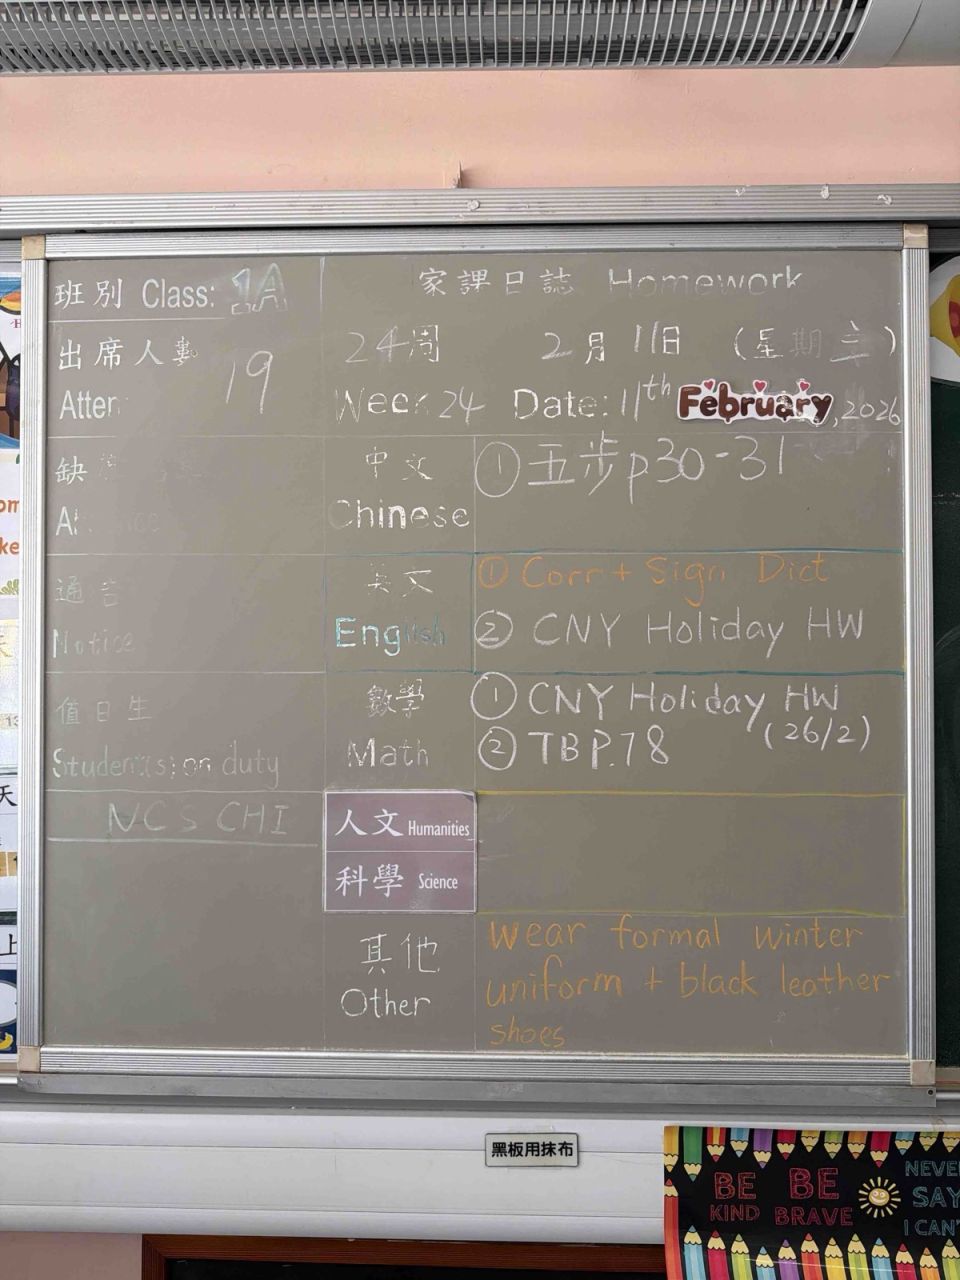 班別 Class: 1A
出席人數 19
Atten
缺
A
通告
Notice
值日生
Student(s) on duty
NCS CHI
家課日誌 Homework
24周 2月11日 (星期三)
Week 24 Date: 11th February, 2026
中文
Chinese
① 五步 p.30-31
英文
English
① Corr + Sign Dict
② CNY Holiday HW
數學
Math
① CNY Holiday HW
(26/2)
② TB P.78
人文 Humanities
科學 Science
其他
Other
Wear formal winter
uniform + black leather
shoes
黑板用抹布
BE
KIND
BE
BRAVE
NEVE
SAY
I CAN'